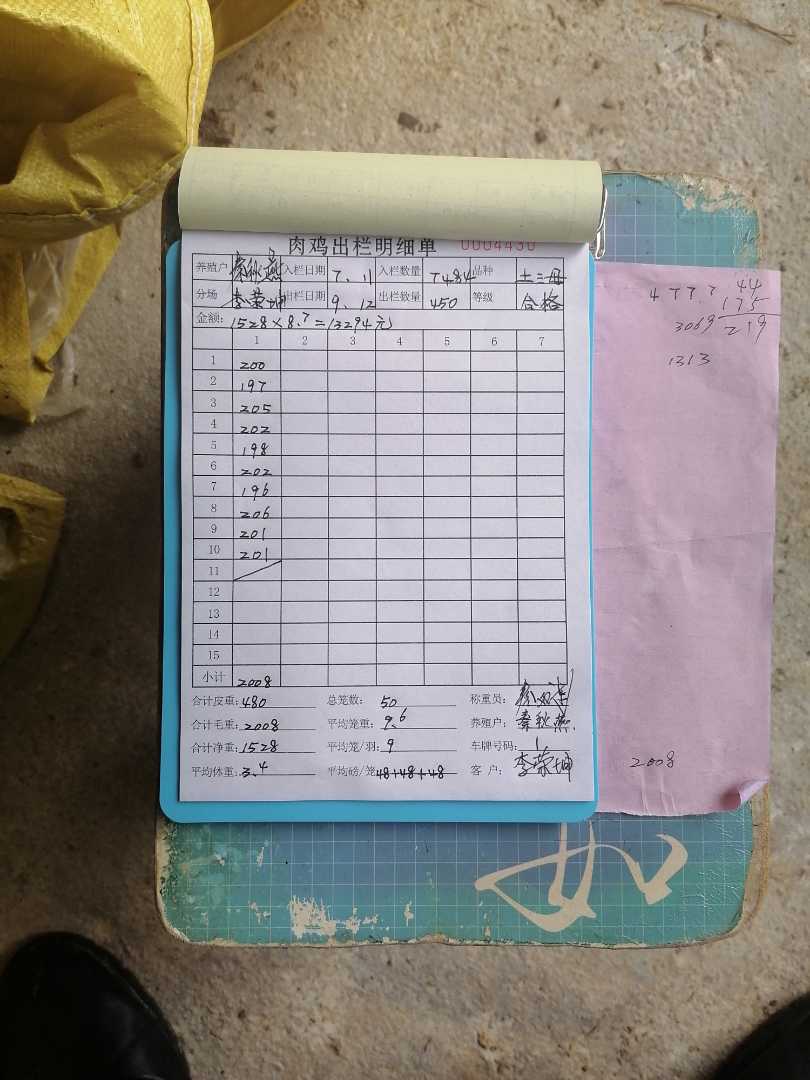 肉鸡出栏明细单 0004430
养殖户 秦秋燕 入栏日期 7.11 入栏数量 7484 品种 土二母
分场 李荣坤 出栏日期 9.12 出栏数量 450 等级 合格
金额: 1528×8.7=13294元
1 2 3 4 5 6 7
1 200
2 197
3 205
4 202
5 198
6 202
7 196
8 206
9 201
10 201
11
12
13
14
15
小计 2008
合计皮重: 480 总笼数: 50 称重员:
合计毛重: 2008 平均笼重: 9.6 养殖户: 秦秋燕
合计净重: 1528 平均笼/羽: 9 车牌号码: 1
平均体重: 3.4 平均磅/笼 48+48+48 客户: 李荣坤
4777 44
175
3069 219
1313
2008
如